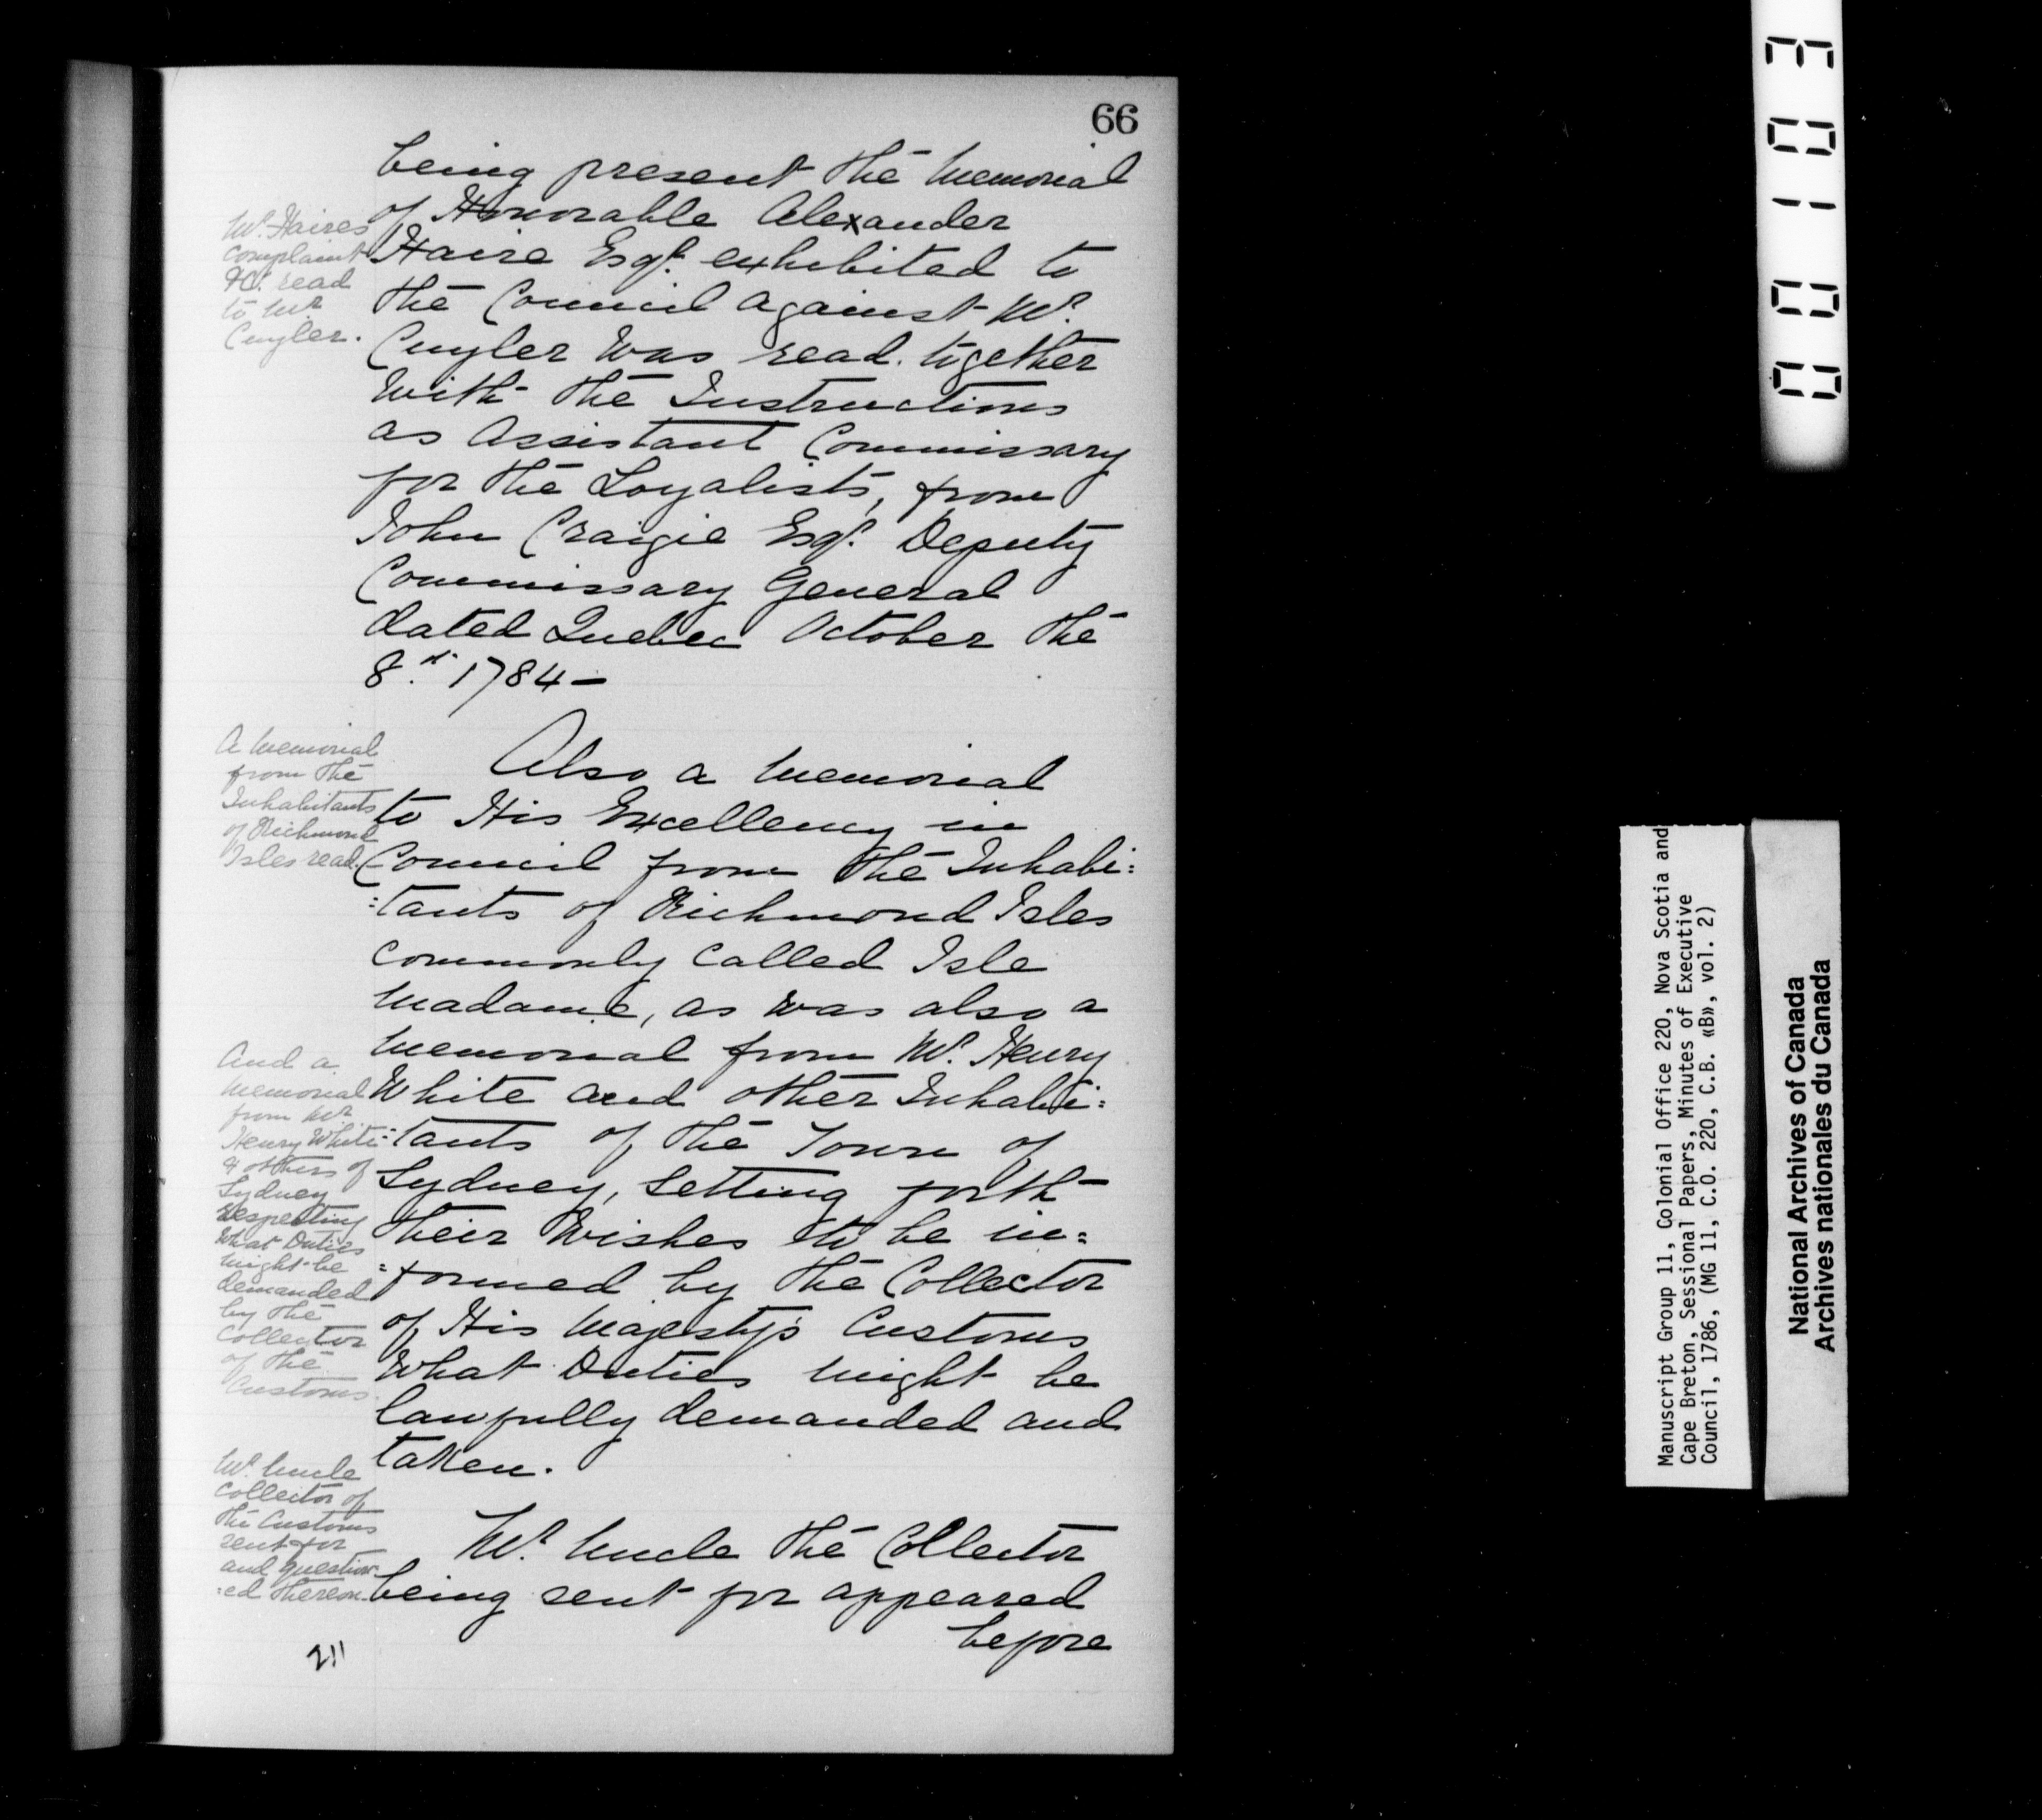 66
being present the Memorial
of Honorable Alexander
Haire Esqr. exhibited to
the Council against Mr.
Cuyler was read together
with the Instructions
as Assistant Commissary
for the Loyalists, from
John Craigie Esqr. Deputy
Commissary General
dated Quebec October the
8th. 1784 —
Mr. Haires
complaint
&c. read
to Mr.
Cuyler.
Also a Memorial
to His Excellency in
Council from the Inhabi:
:tants of Richmond Isles
commonly called Isle
Madame, as was also a
Memorial from Mr. Henry
White and other Inhabi:
:tants of the Town of
Sydney, setting forth
their Wishes to be in:
:formed by the Collector
of His Majesty's Customs
What Duties might be
lawfully demanded and
taken.
A Memorial
from the
Inhabitants
of Richmond
Isles read.
And a
Memorial
from Mr.
Henry White
& others of
Sydney
respecting
what Duties
might be
demanded
by the
Collector
of the
Customs.
Mr. Uncle the Collector
being sent for appeared
before
Mr. Uncle
Collector of
the Customs
sent for
and question
:ed thereon.
211
00103
Manuscript Group 11, Colonial Office 220, Nova Scotia and
Cape Breton, Sessional Papers, Minutes of Executive
Council, 1786, (MG 11, C.O. 220, C.B. «B», vol. 2)
National Archives of Canada
Archives nationales du Canada